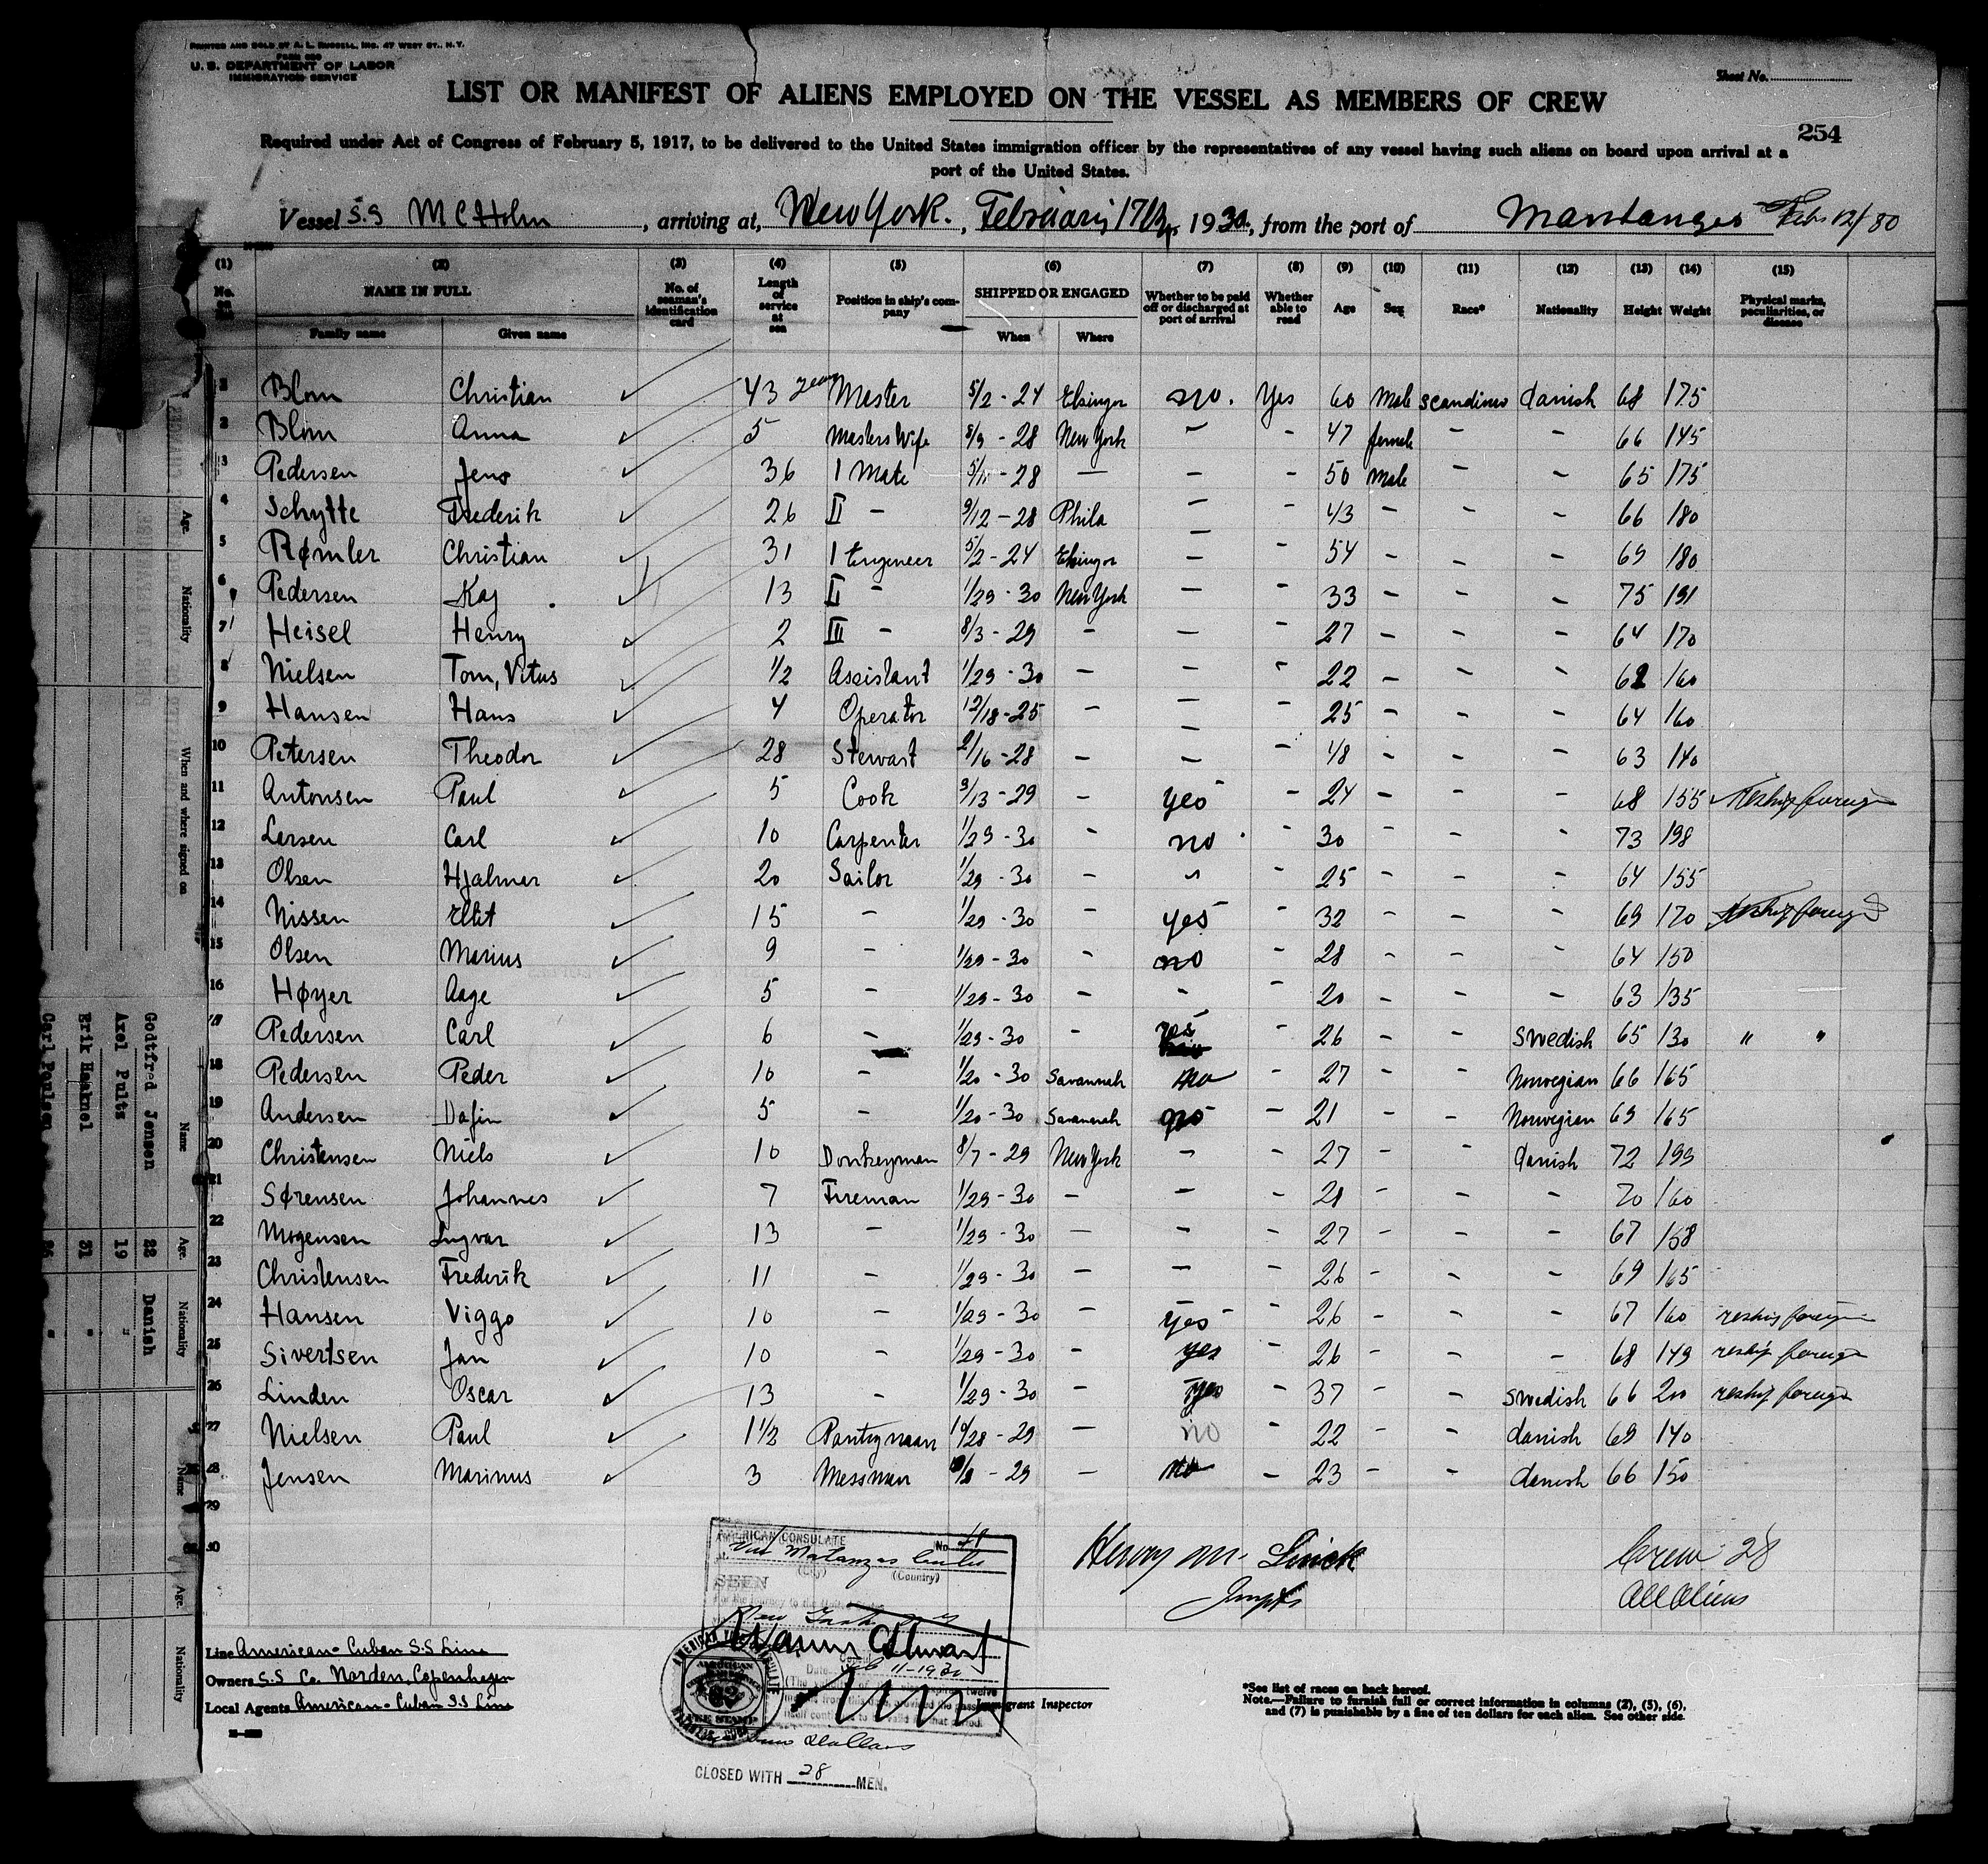 PRINTED AND SOLD BY A. L. RUSSELL, INC. 47 WEST ST., N.Y.
U. S. DEPARTMENT OF LABOR
IMMIGRATION SERVICE
Sheet No.
LIST OR MANIFEST OF ALIENS EMPLOYED ON THE VESSEL AS MEMBERS OF CREW
254
Required under Act of Congress of February 5, 1917, to be delivered to the United States immigration officer by the representatives of any vessel having such aliens on board upon arrival at a
port of the United States.
Vessel S.S M C Holm, arriving at, New York., February 17th, 1930, from the port of Mantanzas Feb 12/30
(1) (2) (3) (4) (5) (6) (7) (8) (9) (10) (11) (12) (13) (14) (15)
No. NAME IN FULL No. of seaman's identification card Length of service at sea Position in ship's company SHIPPED OR ENGAGED Whether to be paid off or discharged at port of arrival Whether able to read Age Sex Race* Nationality Height Weight Physical marks, peculiarities, or disease
Family name Given name When Where
1 Blom Christian 43 years Master 5/2 - 24 Elsingor no. Yes 60 Male Scandinav danish 68 175
2 Blom Anna 5 Masters Wife 8/9 - 28 New York - - 47 female - - 66 145
3 Pedersen Jens 36 I Mate 5/11 - 28 - - - 50 Male - - 65 175
4 Schytte Frederik 26 II - 9/12 - 28 Phila - - 43 - - - 66 180
5 Rømler Christian 31 I Engeneer 5/2 - 24 Elsingor - - 54 - - - 69 180
6 Pedersen Kaj 13 II - 1/29 - 30 New York - - 33 - - - 75 191
7 Heisel Henry 2 III - 8/3 - 29 - - - 27 - - - 64 170
8 Nielsen Tom, Vitus 1/2 Assistant 1/29 - 30 - - - 22 - - - 62 160
9 Hansen Hans 4 Operator 12/18 - 25 - - - 25 - - - 64 160
10 Petersen Theodor 28 Stewart 2/16 - 28 - - - 48 - - - 63 140
11 Antonsen Paul 5 Cook 3/13 - 29 - yes - 24 - - - 68 155 reship foreign
12 Larsen Carl 10 Carpenter 1/29 - 30 - no - 30 - - - 73 198
13 Olsen Hjalmar 20 Sailor 1/29 - 30 - - - 25 - - - 64 155
14 Nissen 15 - 1/29 - 30 - yes - 32 - - - 69 170 reship foreign
15 Olsen Marius 9 - 1/29 - 30 - no - 28 - - - 64 150
16 Høyer Aage 5 - 1/29 - 30 - - - 20 - - - 63 135
17 Pedersen Carl 6 - 1/29 - 30 - yes - 26 - - Swedish 65 130 " "
18 Pedersen Peder 10 - 1/20 - 30 Savannah no - 27 - - Norwegian 66 165
19 Andersen Dafin 5 - 1/20 - 30 Savannah no - 21 - - Norwegian 69 165
20 Christensen Niels 10 Donkeyman 8/7 - 29 New York - - 27 - - danish 72 199
21 Sørensen Johannes 7 Fireman 1/29 - 30 - - - 28 - - - 70 160
22 Mogensen Ingvar 13 - 1/29 - 30 - - - 27 - - - 67 158
23 Christensen Frederik 11 - 1/29 - 30 - - - 26 - - - 69 165
24 Hansen Viggo 10 - 1/29 - 30 - yes - 26 - - - 67 160 reship foreign
25 Sivertsen Jan 10 - 1/29 - 30 - yes - 26 - - - 68 149 reship foreign
26 Linden Oscar 13 - 1/29 - 30 - yes - 37 - - Swedish 66 200 reship foreign
27 Nielsen Paul 1 1/2 Pantrymaan 10/28 - 29 - no - 22 - - danish 69 140
28 Jensen Marinus 3 Messman - 29 - no - 23 - - danish 66 150
29
30
AMERICAN CONSULATE No.
Matanzas Cuba
(City) (Country)
SEEN
Feb 11-1930
Henry M.
Crew 28
All Aliens
Line American-Cuban S.S Line
Owners S.S Co. Norden, Copenhagen
Local Agents American-Cuban S.S Line
Immigrant Inspector
*See list of races on back hereof.
Note.—Failure to furnish full or correct information in columns (2), (5), (6),
and (7) is punishable by a fine of ten dollars for each alien. See other side.
CLOSED WITH 28 MEN.
Name Age. Nationality
Godtfred Jensen 22 Danish
Axel Pults 19 "
Erik Haaknel 21 "
Carl Poulsen
When and where signed on